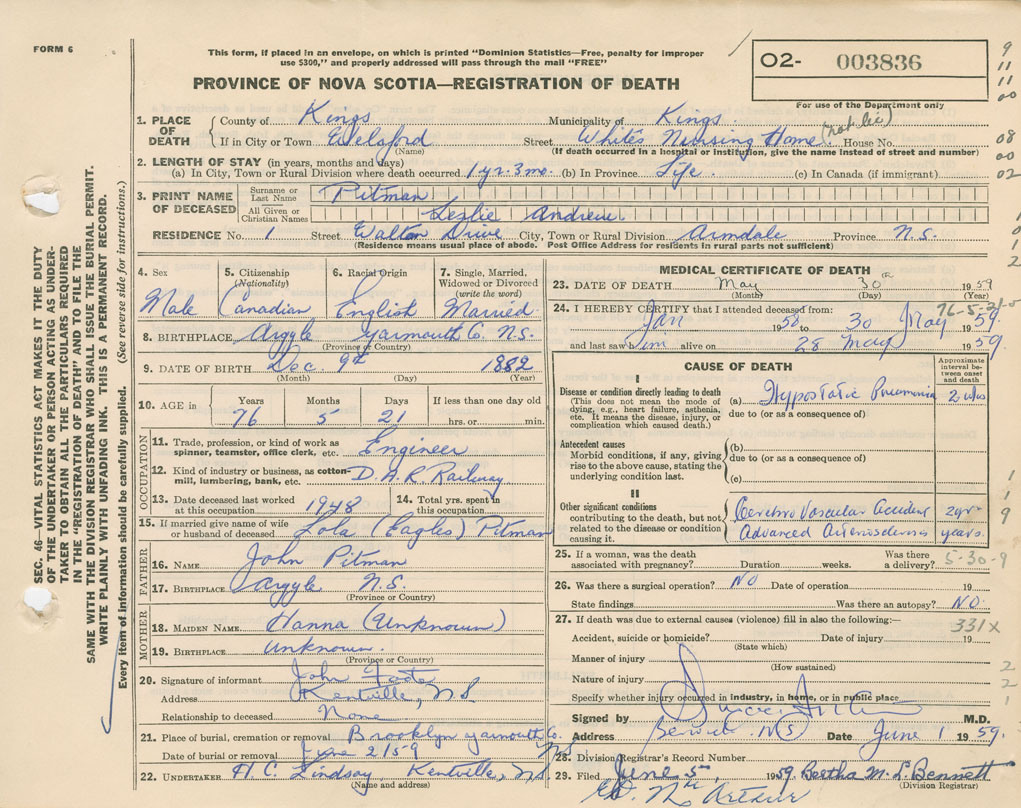 FORM 6
This form, if placed in an envelope, on which is printed "Dominion Statistics—Free, penalty for improper
use $300," and properly addressed will pass through the mail "FREE"
PROVINCE OF NOVA SCOTIA—REGISTRATION OF DEATH
02- 003836
For use of the Department only
9
11
11
00
08
00
02
1. PLACE OF DEATH County of Kings Municipality of Kings
If in City or Town Welsford Street Whites Nursing Home House No.
(Name) (If death occurred in a hospital or institution, give the name instead of street and number)
2. LENGTH OF STAY (in years, months and days)
(a) In City, Town or Rural Division where death occurred 1 yr. 3 mo. (b) In Province Life. (c) In Canada (if immigrant)
3. PRINT NAME OF DECEASED Surname or Last Name Pitman
All Given or Christian Names Leslie Andrew
RESIDENCE No. 1 Street Walton Drive City, Town or Rural Division Armdale Province N.S.
(Residence means usual place of abode. Post Office Address for residents in rural parts not sufficient)
4. Sex Male
5. Citizenship (Nationality) Canadian
6. Racial Origin English
7. Single, Married, Widowed or Divorced (write the word) Married
8. BIRTHPLACE Argyle Yarmouth Co. N.S.
(Province or Country)
9. DATE OF BIRTH Dec. 9th 1882
(Month) (Day) (Year)
10. AGE in Years Months Days If less than one day
76 5 21 hrs. or min.
OCCUPATION
11. Trade, profession, or kind of work as spinner, teamster, office clerk, etc. Engineer
12. Kind of industry or business, as cotton-mill, lumbering, bank, etc. D.A.R. Railway
13. Date deceased last worked at this occupation 1948
14. Total yrs. spent in this occupation
15. If married give name of wife or husband of deceased Lola (Eagles) Pitman
FATHER
16. NAME John Pitman
17. BIRTHPLACE Argyle N.S.
(Province or Country)
MOTHER
18. MAIDEN NAME Hanna (Unknown)
19. BIRTHPLACE Unknown.
(Province or Country)
20. Signature of informant John Foote
Address Kentville, N.S
Relationship to deceased None
21. Place of burial, cremation or removal Brooklyn Yarmouth Co. NS
Date of burial or removal June 2/59
22. UNDERTAKER H.C. Lindsay, Kentville, N.S.
(Name and address)
MEDICAL CERTIFICATE OF DEATH
23. DATE OF DEATH May 30 1959
(Month) (Day) (Year)
24. I HEREBY CERTIFY that I attended deceased from:
76-5-21
Jan 1958 to 30 May 1959.
and last saw him alive on 28 May 1959.
CAUSE OF DEATH
Approximate interval between onset and death
I
Disease or condition directly leading to death
(This does not mean the mode of dying, e.g., heart failure, asthenia, etc. It means the disease, injury, or complication which caused death.)
(a) Hypostatic Pneumonia 2 wks
due to (or as a consequence of)
Antecedent causes
Morbid conditions, if any, giving rise to the above cause, stating the underlying condition last.
(b)
due to (or as a consequence of)
(c)
II
Other significant conditions
contributing to the death, but not related to the disease or condition causing it.
Cerebro Vascular Accident 2 yrs
Advanced Arteriosclerosis years.
25. If a woman, was the death associated with pregnancy? Duration weeks. Was there a delivery?
5-30-9
26. Was there a surgical operation? NO Date of operation 19
State findings Was there an autopsy? NO
27. If death was due to external causes (violence) fill in also the following:—
331X
Accident, suicide or homicide? Date of injury 19
(State which)
Manner of injury
(How sustained)
Nature of injury
Specify whether injury occurred in industry, in home, or in public place
Signed by M.D.
Address Berwick NS Date June 1 1959.
28. Division Registrar's Record Number
29. Filed June 5, 1959. Bertha M. L. Bennett
(Division Registrar)
SEC. 46—VITAL STATISTICS ACT MAKES IT THE DUTY
OF THE UNDERTAKER OR PERSON ACTING AS UNDER-
TAKER TO OBTAIN ALL THE PARTICULARS REQUIRED
IN THE "REGISTRATION OF DEATH" AND TO FILE THE
SAME WITH THE DIVISION REGISTRAR WHO SHALL ISSUE THE BURIAL PERMIT.
WRITE PLAINLY WITH UNFADING INK. THIS IS A PERMANENT RECORD.
Every item of information should be carefully supplied. (See reverse side for instructions.)